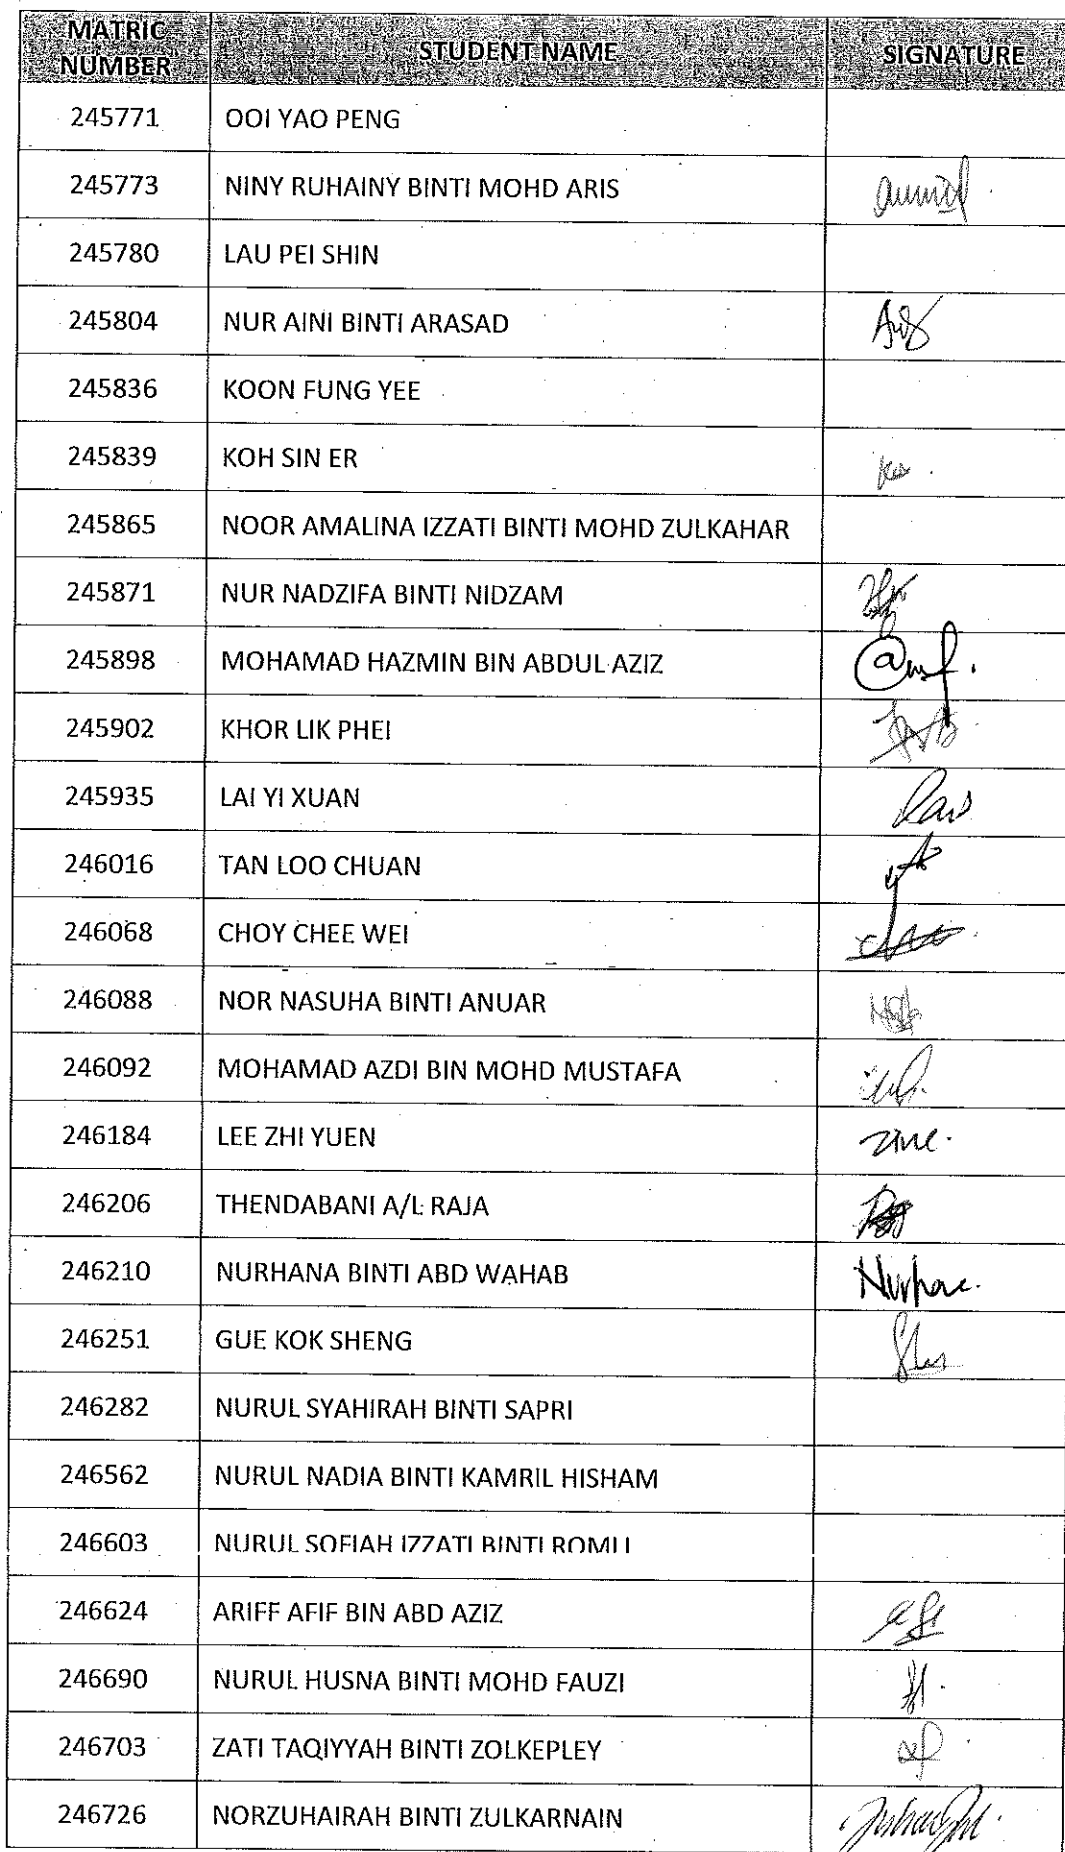 MATRIC NUMBER STUDENT NAME SIGNATURE
245771 OOI YAO PENG
245773 NINY RUHAINY BINTI MOHD ARIS
245780 LAU PEI SHIN
245804 NUR AINI BINTI ARASAD
245836 KOON FUNG YEE
245839 KOH SIN ER
245865 NOOR AMALINA IZZATI BINTI MOHD ZULKAHAR
245871 NUR NADZIFA BINTI NIDZAM
245898 MOHAMAD HAZMIN BIN ABDUL AZIZ
245902 KHOR LIK PHEI
245935 LAI YI XUAN
246016 TAN LOO CHUAN
246068 CHOY CHEE WEI
246088 NOR NASUHA BINTI ANUAR
246092 MOHAMAD AZDI BIN MOHD MUSTAFA
246184 LEE ZHI YUEN
246206 THENDABANI A/L RAJA
246210 NURHANA BINTI ABD WAHAB
246251 GUE KOK SHENG
246282 NURUL SYAHIRAH BINTI SAPRI
246562 NURUL NADIA BINTI KAMRIL HISHAM
246603 NURUL SOFIAH IZZATI BINTI ROMLI
246624 ARIFF AFIF BIN ABD AZIZ
246690 NURUL HUSNA BINTI MOHD FAUZI
246703 ZATI TAQIYYAH BINTI ZOLKEPLEY
246726 NORZUHAIRAH BINTI ZULKARNAIN